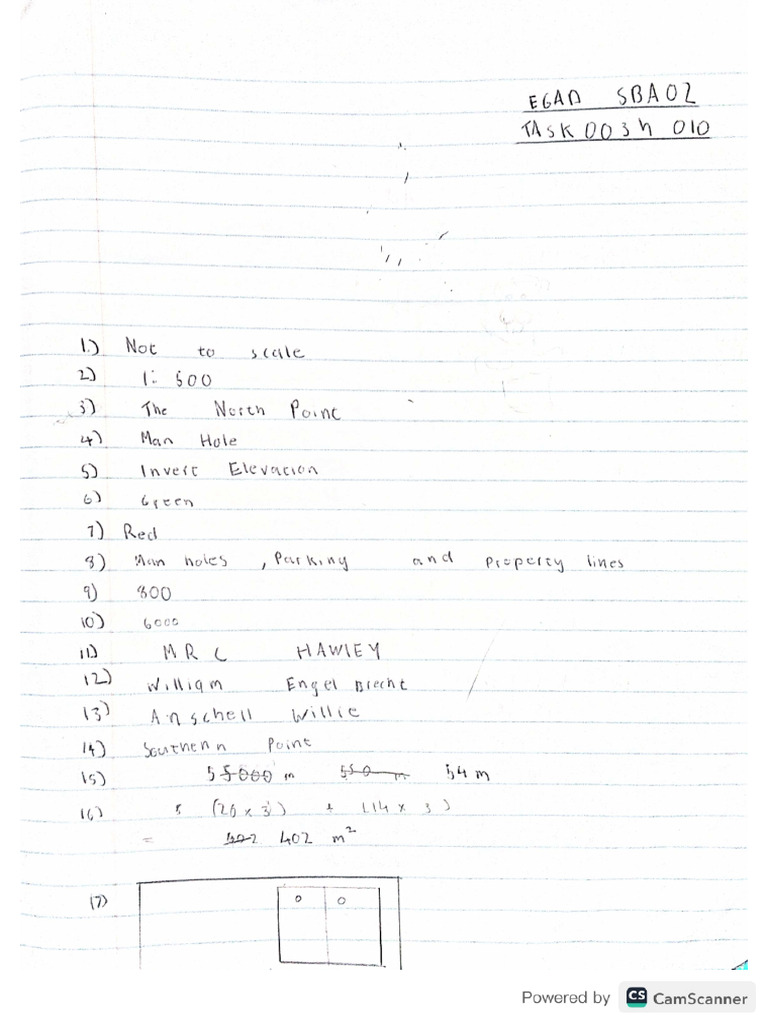 EGAD SBA02
TASK 003h 010
1.) Not to scale
2) 1: 500
3) The North Point
4) Man Hole
5) Invert Elevation
6) Green
7) Red
8) Man holes , Parking and Property lines
9) 800
10) 6000
11) MR C HAWLEY
12) William Engel Brecht
13) Anschell Willie
14) Southenn Point
15) 55000 m 550 m 54 m
16) (20 x 3) + (14 x 3)
= 402 402 m²
17)
Powered by CS CamScanner